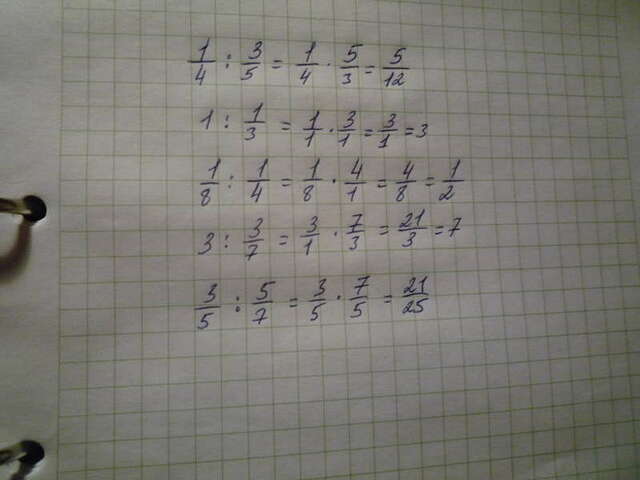 1/4 : 3/5 = 1/4 · 5/3 = 5/12
1 : 1/3 = 1/1 · 3/1 = 3/1 = 3
1/8 : 1/4 = 1/8 · 4/1 = 4/8 = 1/2
3 : 3/7 = 3/1 · 7/3 = 21/3 = 7
3/5 : 5/7 = 3/5 · 7/5 = 21/25